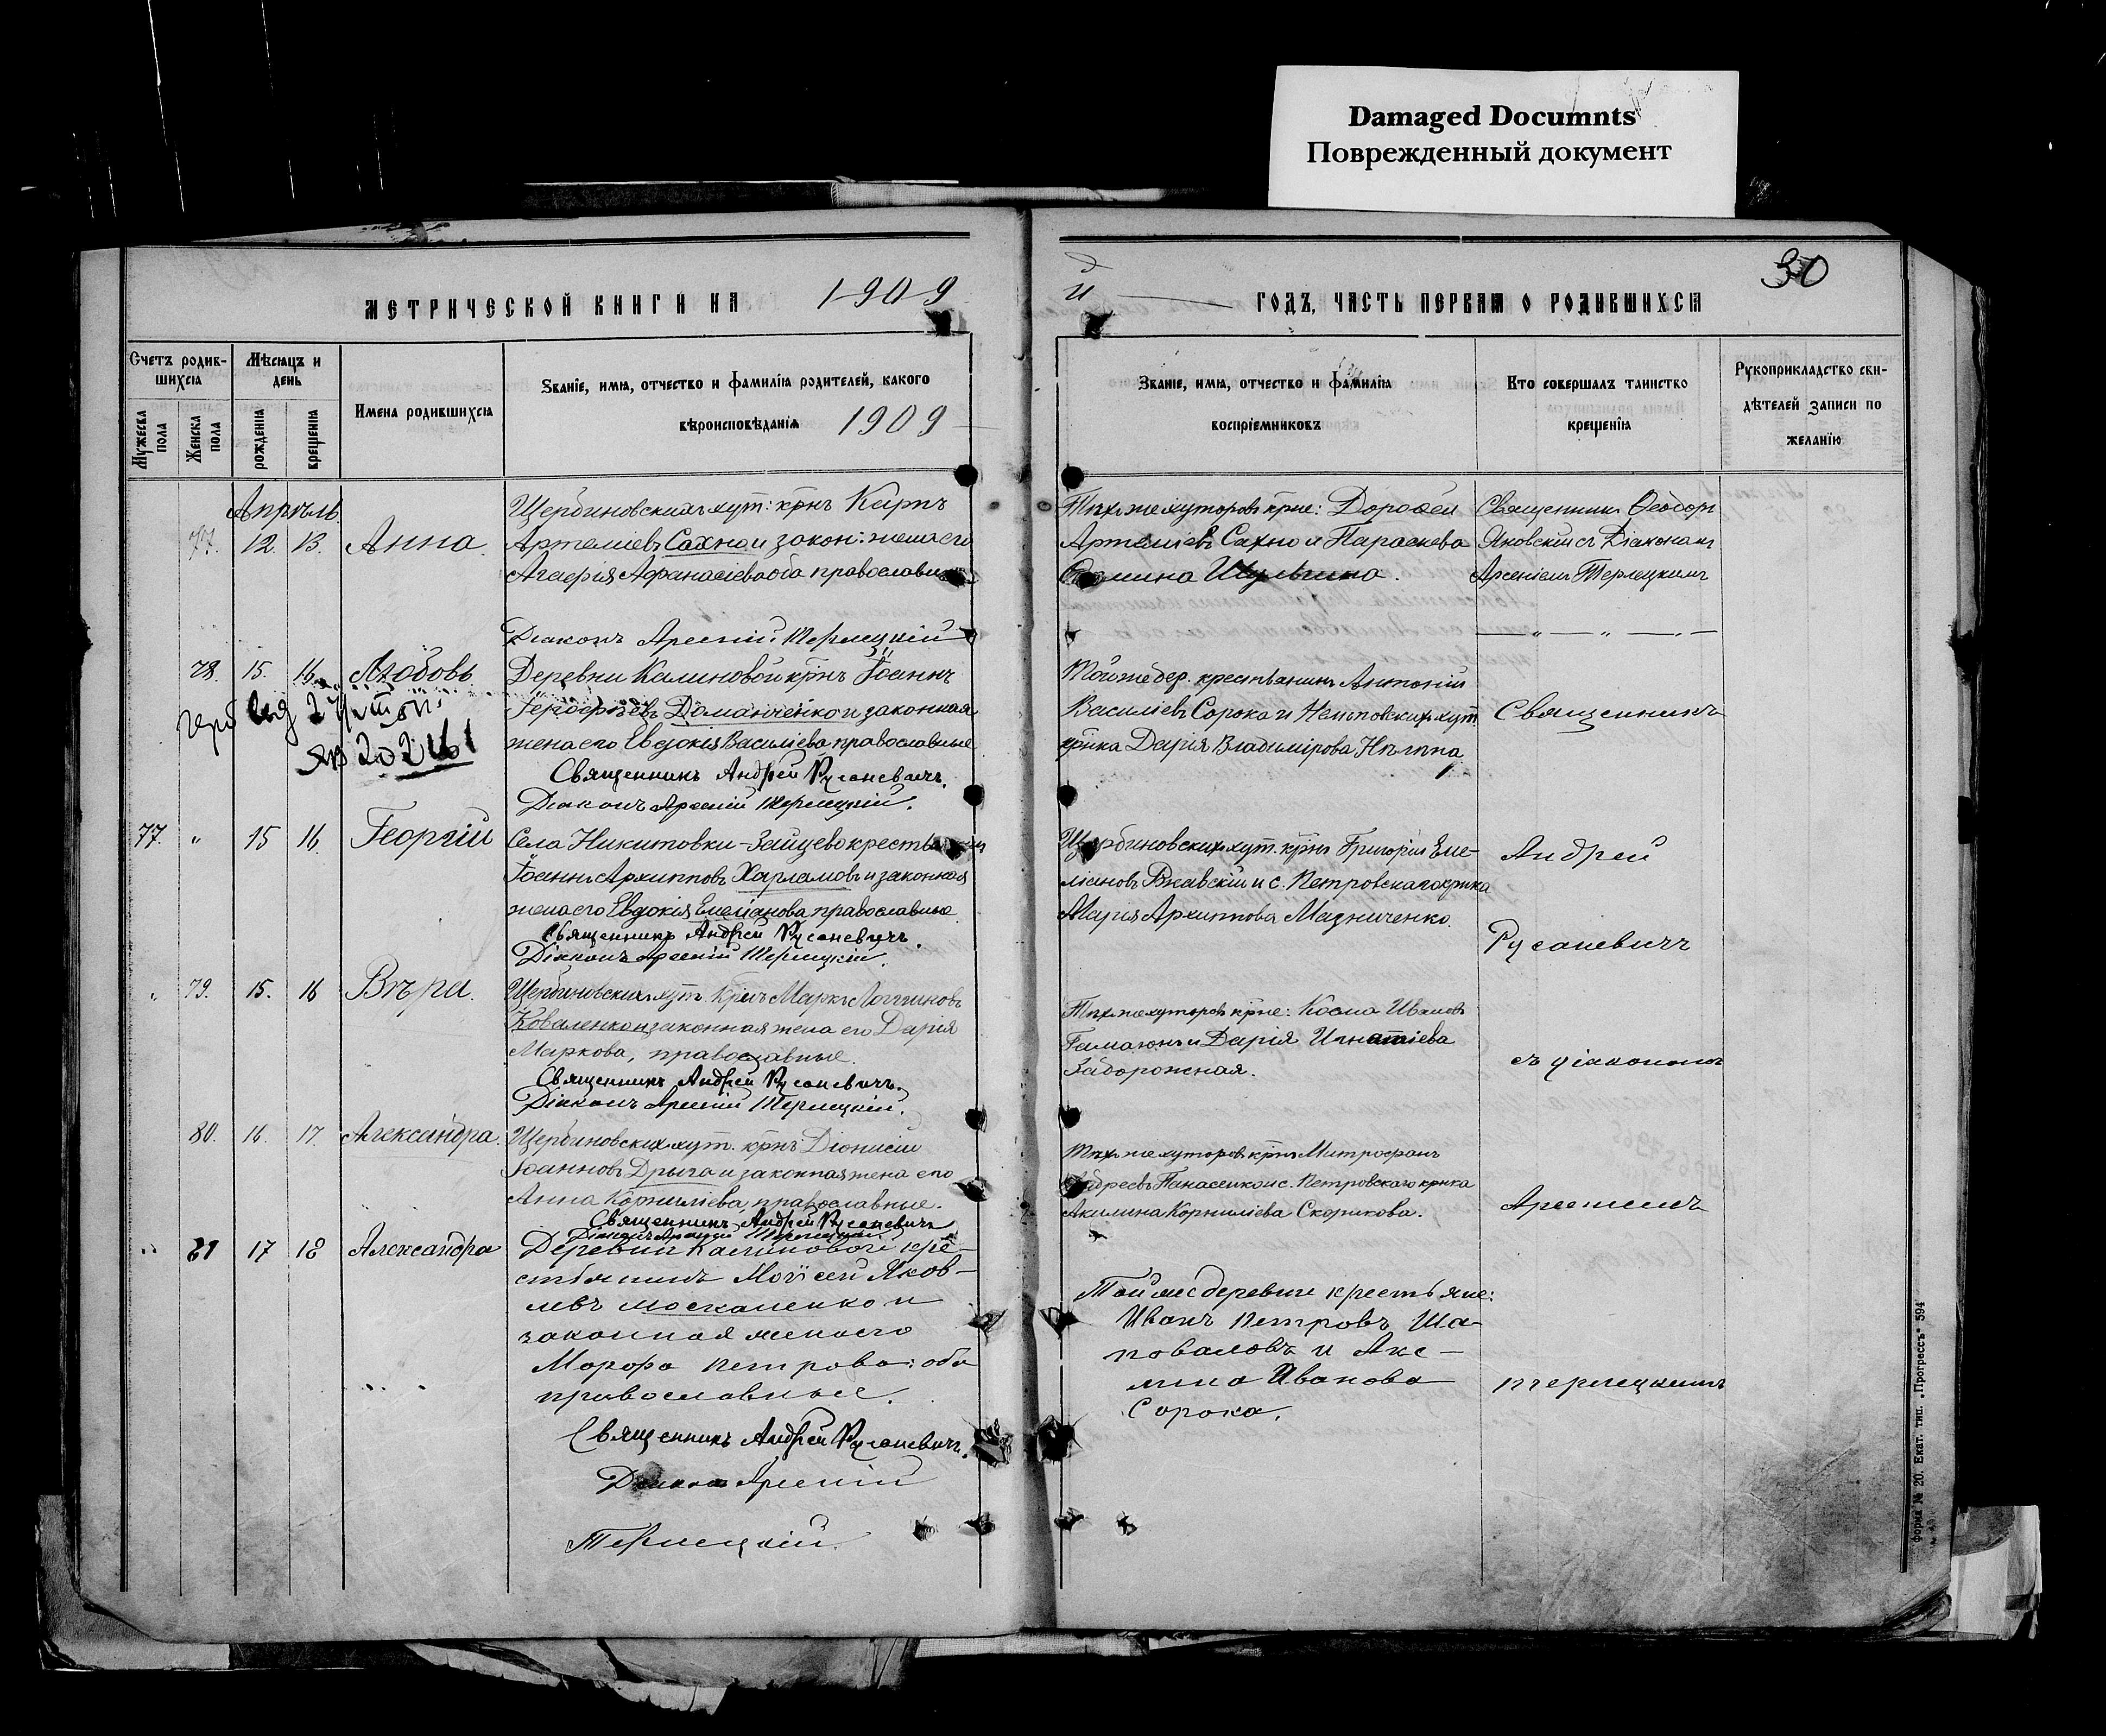 Damaged Documnts
Поврежденный документ
30
МЕТРИЧЕСКОЙ КНИГИ НА 1909
ГОДЪ, ЧАСТЬ ПЕРВАЯ О РОДИВШИХСЯ
Счетъ родив-
шихся
Мужеска пола
Женска пола
Мѣсяцъ и
день
рожденія
крещенія
Имена родившихся
Званіе, имя, отчество и фамилія родителей, какого
вѣроисповѣданія 1909
Званіе, имя, отчество и фамилія
воспріемниковъ
Кто совершалъ таинство
крещенія
Рукоприкладство сви-
дѣтелей записи по
желанію
Апрѣль
77. 12. 13. Анна.
Щербиновскихъ хут: крнъ Карпъ
Артемиевъ Сахно и закон: жена его
Агафія Афанасіева оба православные
Діаконъ Арсеній Терлецкій
Тѣхъ же хуторовъ крне: Дорофей
Артеміевъ Сахно и Параскева
Шульгина.
Священникъ Феодоръ
Яновскій съ Діакономъ
Арсеніемъ Терлецкимъ
78. 15. 16. Любовь
Деревни Калиновой крнъ Іоаннъ
Доманченко и законная
жена его Евдокія Василіева православные
Священникъ Андрей Русаневичъ.
Діаконъ Арсеній Терлецкій.
Той же дер. крестьянинъ Антоній
Василіевъ Сорока и хут.
крнка Дарія Владимірова
Священникъ
77. " 15 16. Георгій
Села Никитовки-Зайцево
Іоаннъ Архипповъ Харламовъ и законная
жена его Евдокія Емеліанова православные.
Священникъ Андрей Русаневичъ.
Діаконъ Арсеній Терлецкій.
Щербиновскихъ хут. крнъ Григорій Еме-
ліановъ Ржавскій и с. Петровскаго крнка
Марія Архиппова Мазниченко.
Андрей
Русаневичъ
" 79. 15. 16 Вѣра.
Щербиновскихъ хут. крнъ Маркъ Логгиновъ
Коваленко и законная жена его Дарія
Маркова, православные.
Священникъ Андрей Русаневичъ.
Діаконъ Арсеній Терлецкій.
Тѣхъ же хуторовъ крне: Косма Ивановъ
Гамаюнъ и Дарія Игнатіева
Задорожная.
съ діакономъ
80. 16. 17. Александра.
Щербиновскихъ хут. крнъ Діонисій
Іоанновъ Дрыга и законная жена его
Анна Корниліева, православные.
Священникъ Андрей Русаневичъ
Діаконъ Арсеній Терлецкій
Тѣхъ же хуторовъ крнъ Митрофанъ
Андреевъ Панасенко и с. Петровскаго крнка
Акилина Корниліева Скорикова.
Арсеніемъ
" 81 17 18 Александра
Деревни Калиновой кре-
стьянинъ Моѵсей Яков-
левъ Москаленко и
законная жена его
Марфа Петрова: оба
православные.
Священникъ Андрей Русаневичъ.
Діаконъ Арсеній
Терлецкій.
Той же деревни крестьяне:
Иванъ Петровъ Ша-
поваловъ и Акс-
Иванова
Сорока.
Терлецкимъ
Форма № 20. Екат. тип. „Прогрессъ" 594